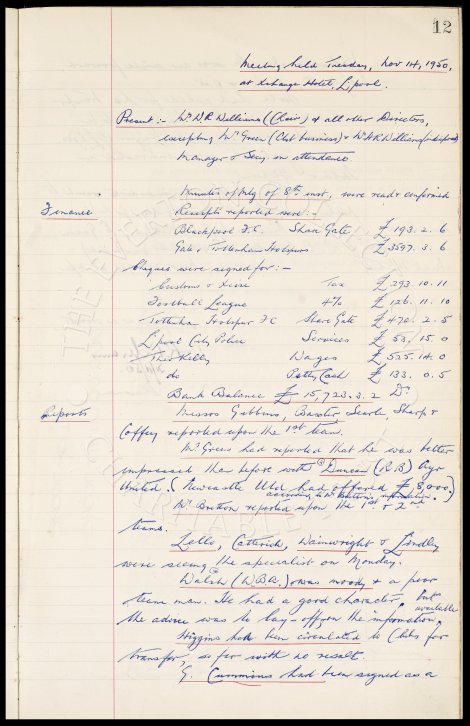 12
Meeting held Tuesday, Nov 14, 1950,
at Exchange Hotel, L'pool.
Present :- Mr W.R. Williams (Chair) & all other Directors,
excepting Mr Green (Club business) &
Manager & Secy. in attendance
Minutes of Mtg of 8th inst. were read & confirmed
Finance Receipts reported were :-
Blackpool F.C. Share Gate £193. 2. 6
Gate v Tottenham Hotspurs £3597. 3. 6
Cheques were signed for :-
Customs & Excise Tax £293. 10. 11
Football League 4% £126. 11. 10
Tottenham Hotspur F C Share Gate £470. 2. 5
L'pool City Police Services £53. 15. 0
Theo Kelly Wages £525. 14. 0
do Petty Cash £133. 0. 5
Bank Balance £15,723. 3. 2 Dr.
Reports Messrs Gibbins, Baxter Searle Sharp &
Coffey reported upon the 1st team.
Mr Green had reported that he was better
impressed than before with Duncan (R.B.) Ayr
United. (Newcastle Utd had offered £8000.)
according to Mr Britton's information.
Mr Britton reported upon the 1st & 2nd
teams.
Lello, Catterick, Wainwright & Lindley
were seeing the specialist on Monday.
Walsh (W.B.A.) was moody & a poor
team man. He had a good character, but
the advice was to lay-off, on the information available
Higgins had been circulated to Clubs for
transfer, so far with no result.
G. Cummins had been signed as a